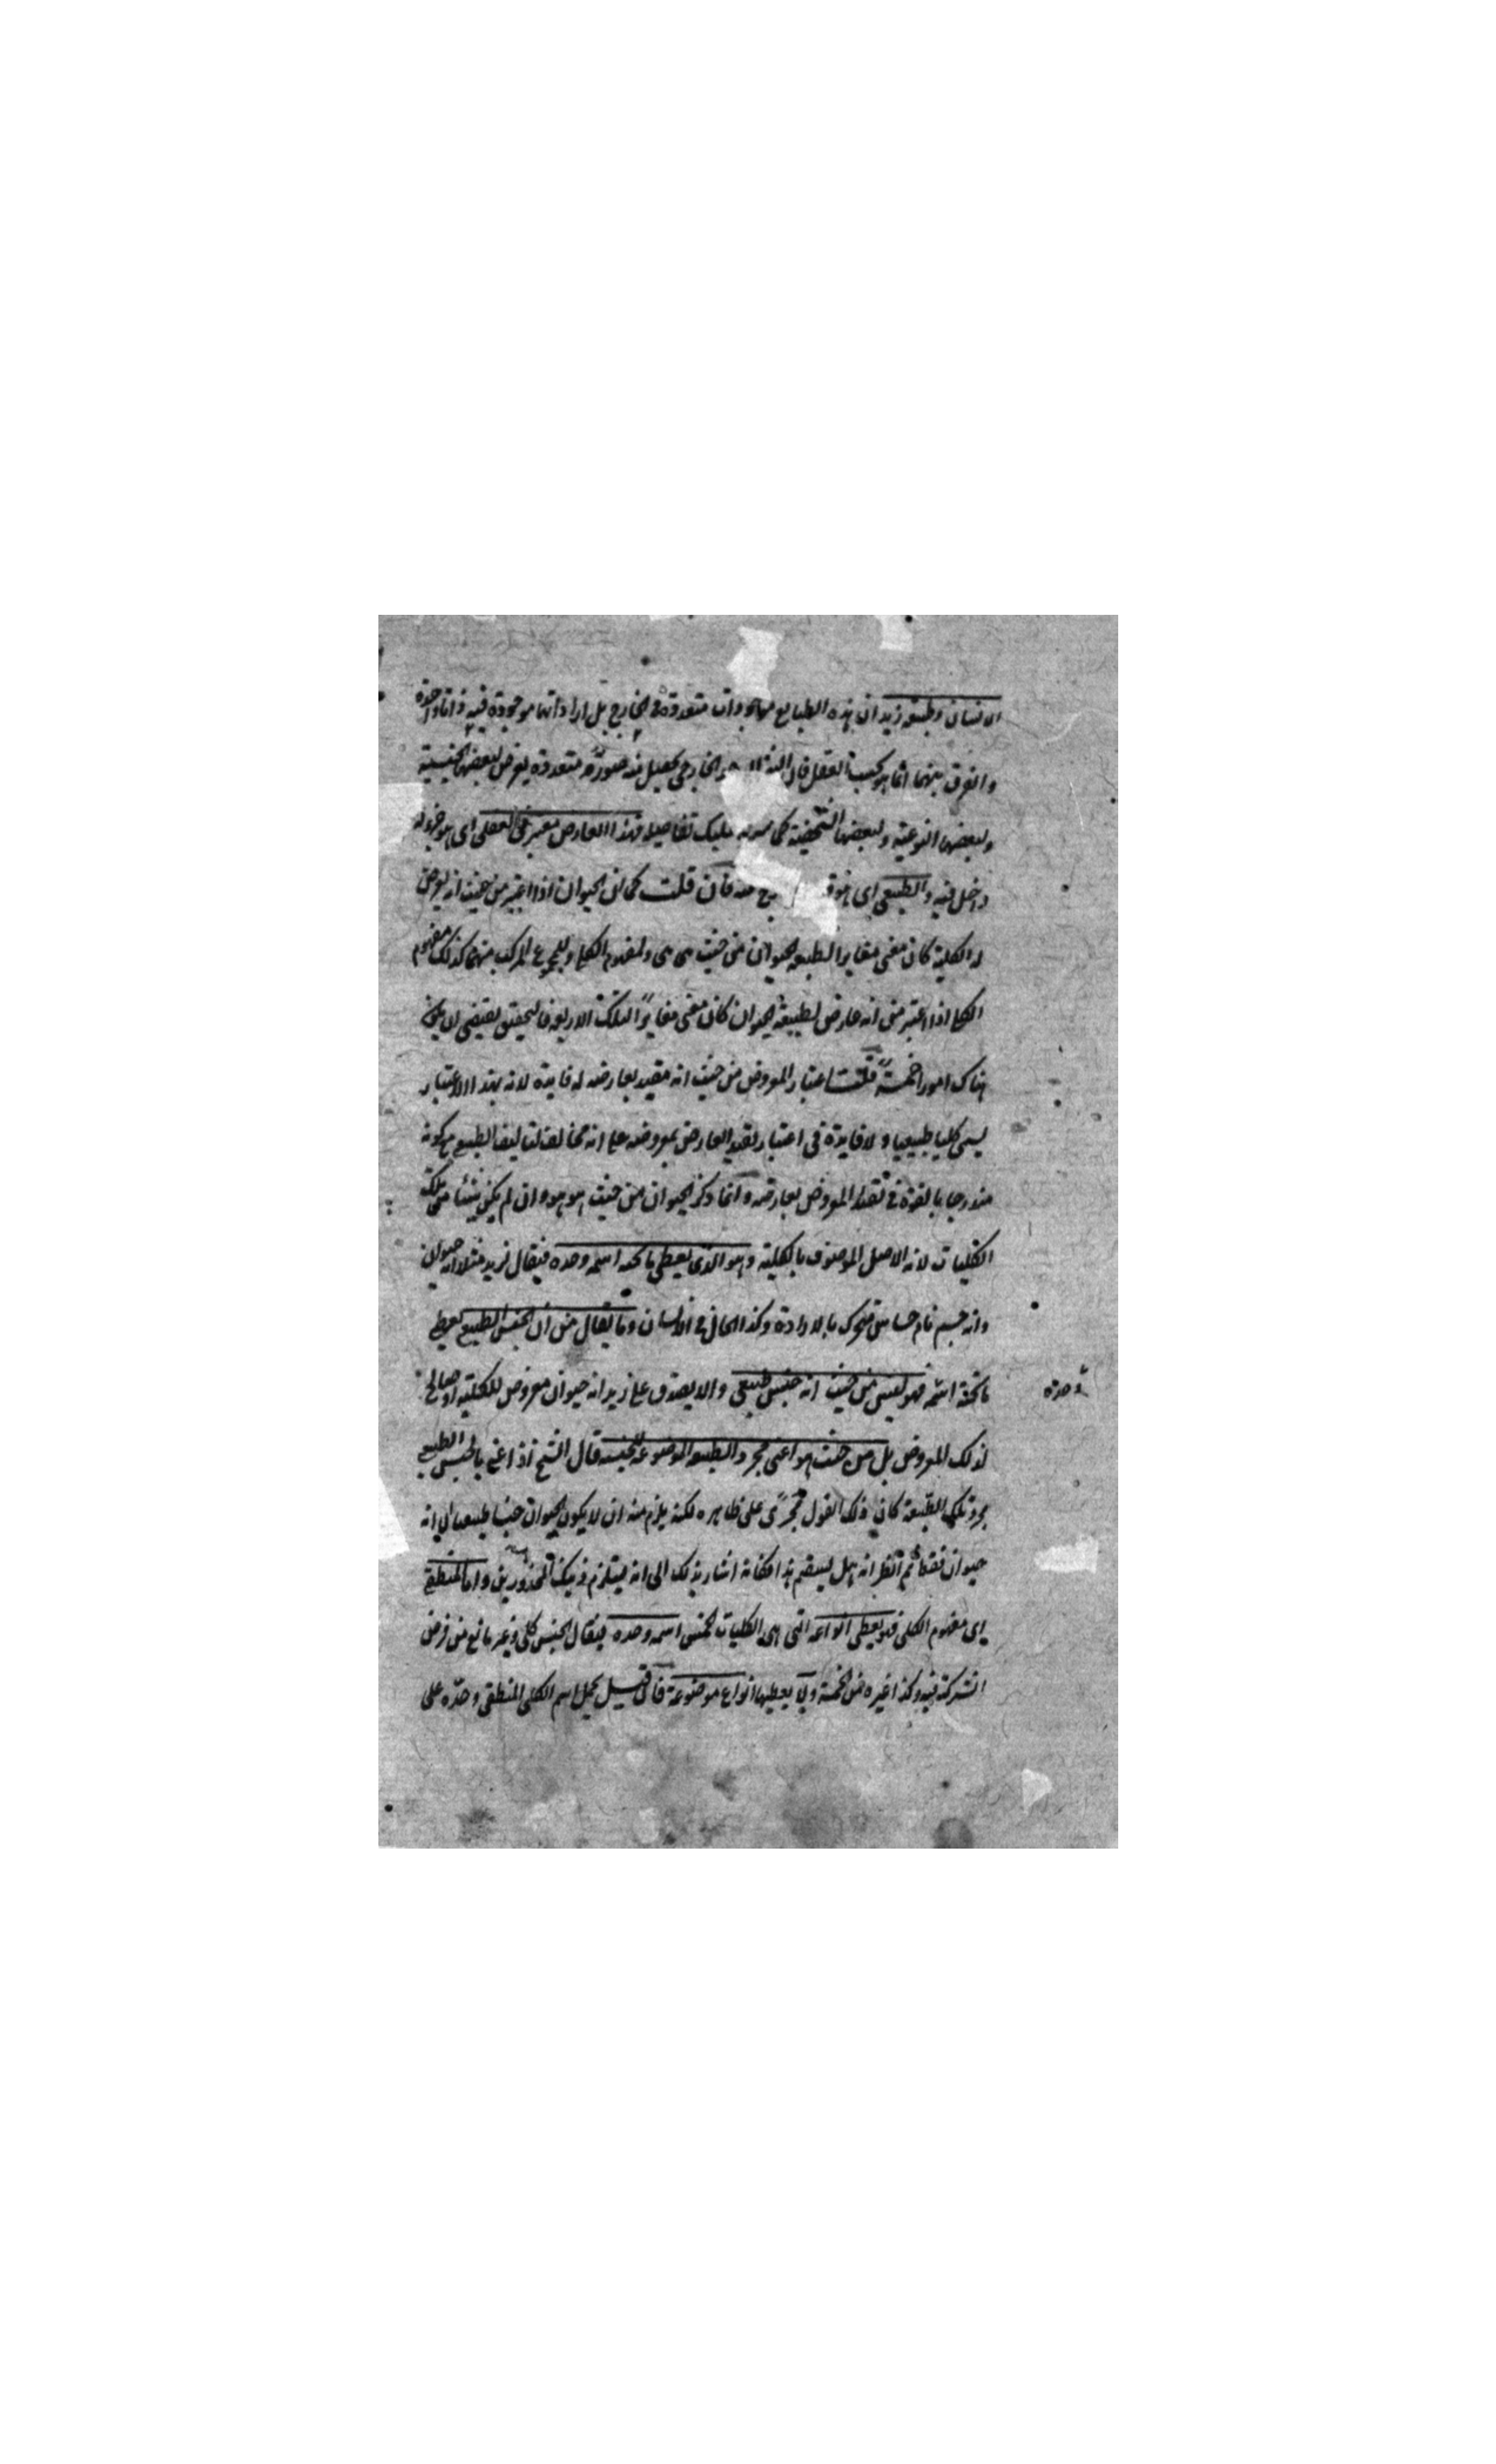 الانسان وطبيعة زيد ان هذه الطبايع موجودات متعددة في الخارج بل اراد انها موجودة فيه ذاتا واحدة
والفرق بينها انما هو بحسب العقل فان الخارجي يحصل منه صورة متعددة يعرض لبعضها الجنسية
ولبعضها النوعية ولبعضها الشخصية كما عليك تفاصيله فهذا العارض معتبر في العقلي اي هو جزء له
داخل فيه والطبيعي اي هو منه فان قلت كما ان الحيوان اذا اعتبر من حيث انه يعرض
له الكلية كان معنى مغايرا لطبيعة الحيوان من حيث هي هي ولمفهوم الكلي وللمجموع المركب منهما كذلك مفهوم
الكلي اذا اعتبر من انه عارض لطبيعة الحيوان كان معنى مغايرا لتلك الاربعة فالتحقيق يقتضي ان يكون
هناك امورا خمسة قلت اعتبار المعروض من حيث انه مقيد بعارضه له فايدة لانه بهذا الاعتبار
يسمى كليا طبيعيا ولا فايدة في اعتبار تقييد العارض بمعروضه على انه مخالف لتاليف الطبيعي مع كونه
مندرجا بالقوة في تقييد المعروض بعارضه وانما ذكر الحيوان من حيث هو هو وان لم يكن شيئا من تلك
الكليات لانه الاصل الموصوف بالكلية وهو الذي يعطي ما تحته اسمه وحده فيقال لزيد مثلا انه حيوان
وانه جسم نام حساس متحرك بالارادة وكذا الحال في الانسان وما يقال من ان الجنس الطبيعي يعطي
ما تحته اسمه فهو ليس من حيث انه جنس طبيعي والا يصدق على زيد انه حيوان معروض للكلية او صالح
وحده
لذلك المعروض بل من حيث هو اعني مجرد الطبيعة الموضوعة للجنسية قال الشيخ اذا عني بالجنس الطبيعي
مجرد تلك الطبيعة كان ذلك القول مجرى على ظاهره لكنه يلزم منه ان لا يكون الحيوان جنسا طبيعيا الا انه
حيوان فقط ثم انظر انه هل يستقيم هذا فكانه اشار بذلك الى انه يستلزم ذينك المحذورين واما المنطقي
اي مفهوم الكلي فهو يعطي انواعه التي هي الكليات الخمس اسمه وحده فيقال الجنس كلي وغير مانع من فرض
الشركة فيه وكذا غيره من الخمسة ولا يعطيها انواع موضوعه فان قيل يحمل اسم الكلي المنطقي وحده على